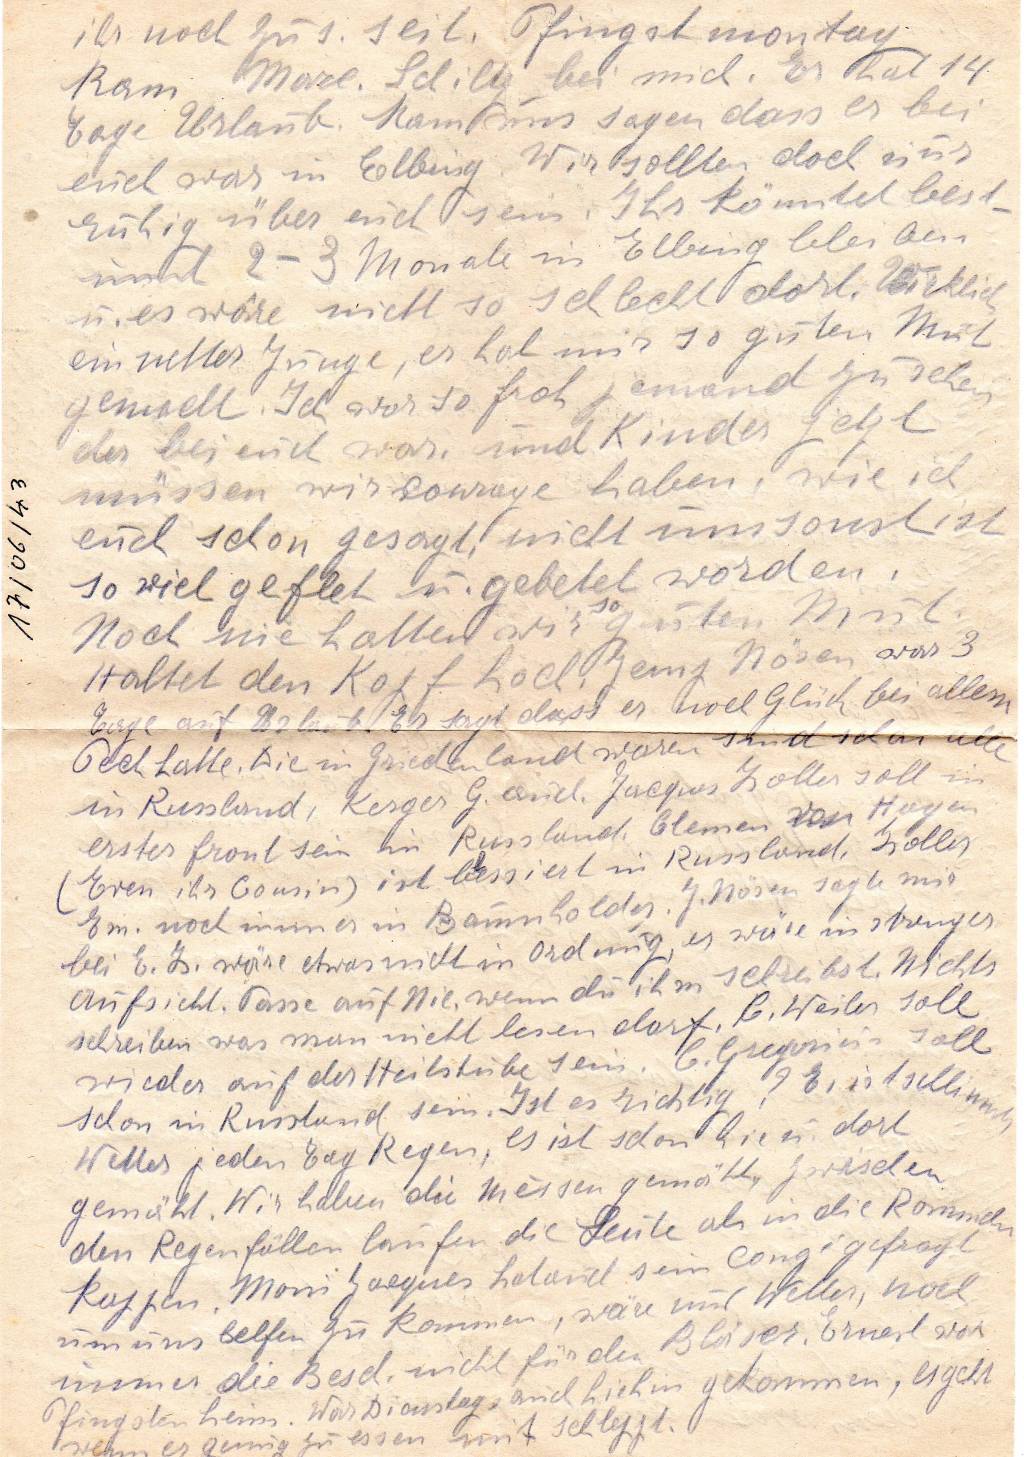 ihr noch zus. seit. Pfingstmontag
kam Marc. Schiltz bei mich. Er hat 14
Tage Urlaub. Kam uns sagen dass er bei
euch war in Elbing. Wir sollten doch nur
ruhig über euch sein. Ihr könntet best-
immt 2-3 Monate in Elbing bleiben
u. es wäre nicht so schlecht dort. Wirklich
ein netter Junge, er hat mir so guten Mut
gemacht. Ich war so froh jemand zu sehen
der bei euch war. und Kinder jetzt
müssen wir courage haben, wie ich
euch schon gesagt, nicht umsonst ist
so viel gefleht u. gebetet worden.
Noch nie hatten wir so guten Mut.
Haltet den Kopf hoch. Jemp Nösen war 3
Tage auf Urlaub. Er sagt dass er noch Glück bei allem
Pech hatte. Die in Griechenland waren sind schon alle
in Russland, Kerger G. auch. Jacques Zoller soll in
erster front sein in Russland. Clemen von Hagen
(Even ihr Cousin) ist blessiert in Russland. Zoller
Em. noch immer in Baumholder. J. Nösen sagte mir
bei E. Z. wäre etwas nicht in Ordnung, er wäre in strenger
Aufsicht. Passe auf Nic. wenn du ihm schreibst. Nichts
schreiben was man nicht lesen darf. C. Weiler soll
wieder auf der Heilstube sein. C. Gregorius soll
schon in Russland sein. Ist es richtig? E. ist schlimmes
Wetter jeden Tag Regen, es ist schon hie u. dort
gemäht. Wir haben die Messen gemäht, zwischen
den Regenfällen laufen die Leute als in die
Kappen. Moni Jacques hat auch sein Congé gefragt
um uns helfen zu kommen, wäre nur Wetter, noch
immer die Besch. nicht für den Bläser. Ernest war
Pfingsten heim. War Dienstags auch hiehin gekommen, es geht
wenn er genug zu essen mit schleppt.
17/06/43